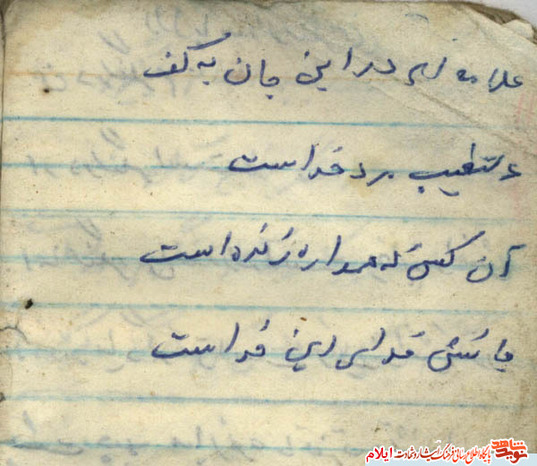 علامه امیر در این جان به کف
دستغیب مرد خداست
آن کس که همواره زنده است
جانش فدای این خداست
نوید شاهد
پایگاه اطلاع رسانی فرهنگ ایثار و شهادت ایلام